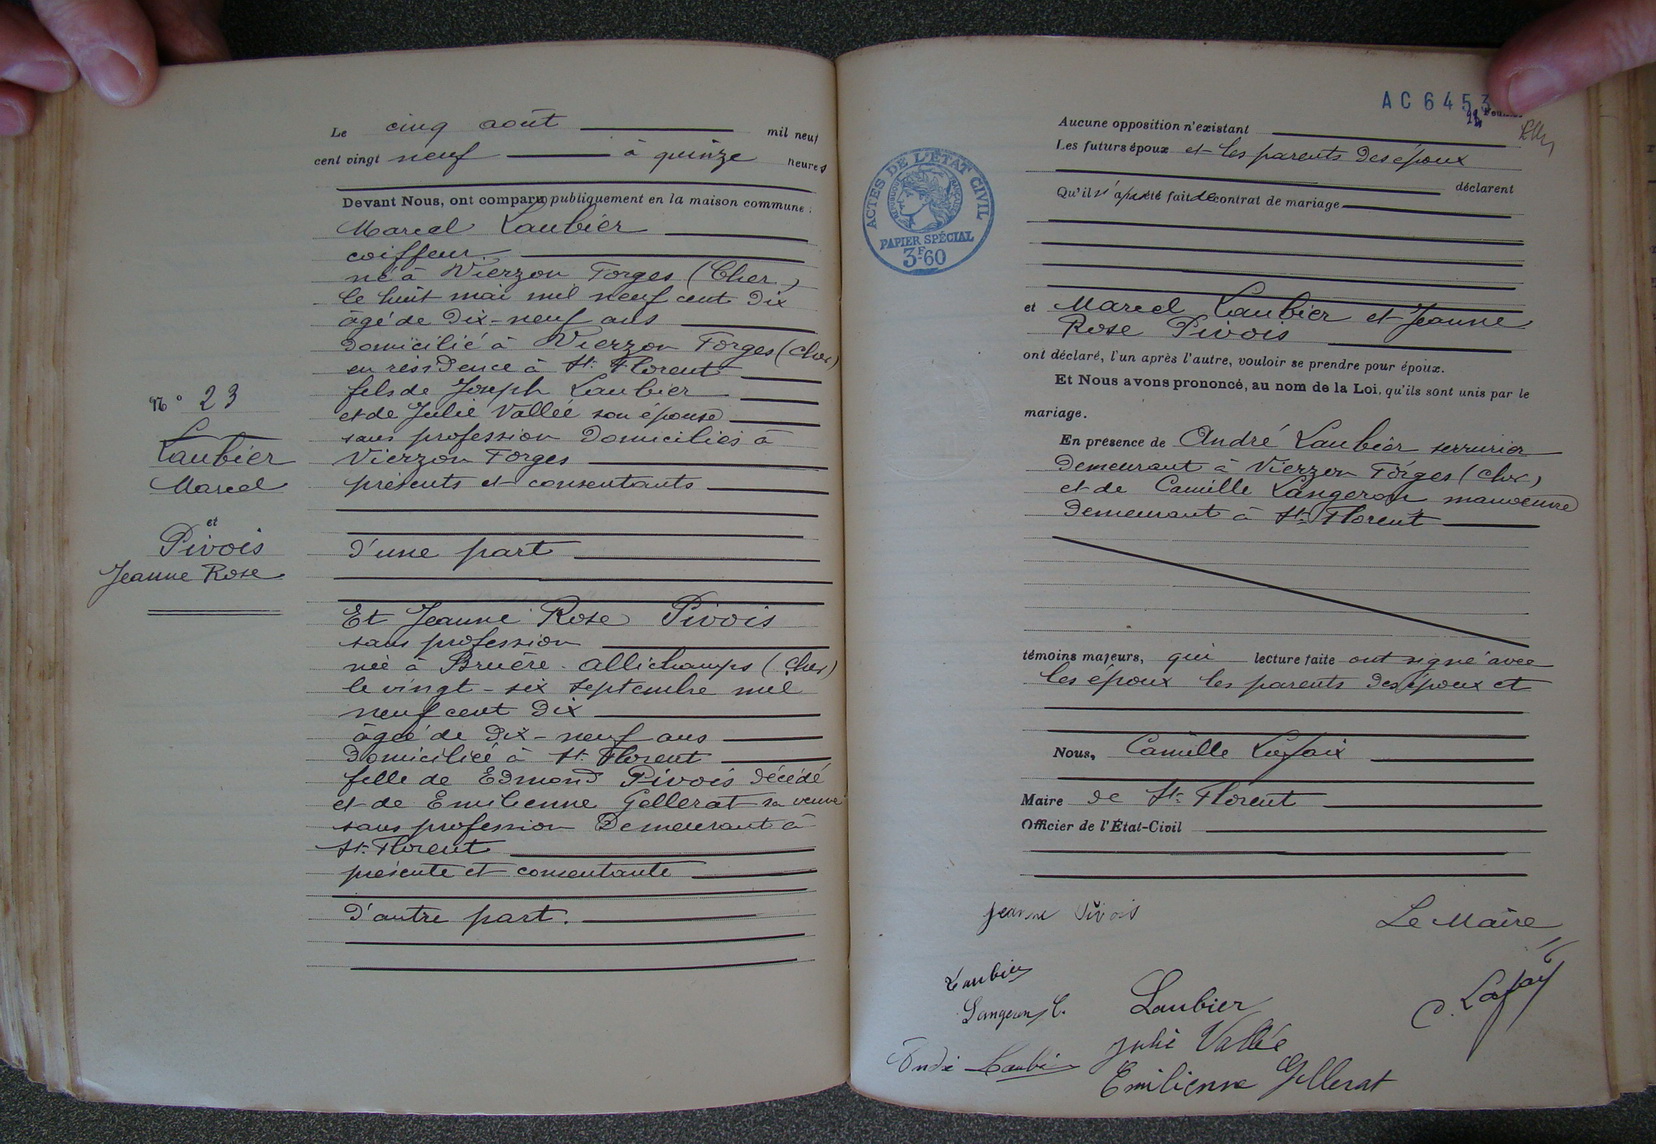 Le cinq août mil neuf
cent vingt neuf à quinze heures
Devant Nous, ont comparu publiquement en la maison commune :
Marcel Laubier
coiffeur
né à Vierzon Forges (Cher)
le huit mai mil neuf cent dix
âgé de dix-neuf ans
domicilié à Vierzon Forges (Cher)
en résidence à St. Florent
fils de Joseph Laubier
et de Julie Vallée son épouse
sans profession domiciliés à
Vierzon Forges
présents et consentants
d'une part
N° 23
Laubier
Marcel
et
Pivois
Jeanne Rose
Et Jeanne Rose Pivois
sans profession
née à Bruère-Allichamps (Cher)
le vingt-six septembre mil
neuf cent dix
âgée de dix-neuf ans
domiciliée à St. Florent
fille de Edmond Pivois décédé
et de Emilienne Gellerat sa veuve
sans profession demeurant à
St. Florent
présente et consentante
d'autre part.
AC 6453
Aucune opposition n'existant
Les futurs époux et les parents des époux
déclarent
Qu'il n'a pas été fait de contrat de mariage
ACTES DE L'ÉTAT CIVIL
RÉPUBLIQUE FRANÇAISE
PAPIER SPÉCIAL
3F60
et Marcel Laubier et Jeanne
Rose Pivois
ont déclaré, l'un après l'autre, vouloir se prendre pour époux.
Et Nous avons prononcé, au nom de la Loi, qu'ils sont unis par le
mariage.
En présence de André Laubier serrurier
demeurant à Vierzon Forges (Cher)
et de Camille Langeron manoeuvre
demeurant à St. Florent
témoins majeurs, qui lecture faite ont signé avec
les époux les parents des époux et
Nous, Camille Lafaix
Maire de St. Florent
Officier de l'État-Civil
Jeanne Pivois
Le Maire
Laubier
Langeron C.
Laubier
C. Lafaix
Julie Vallée
André Laubier
Emilienne Gellerat